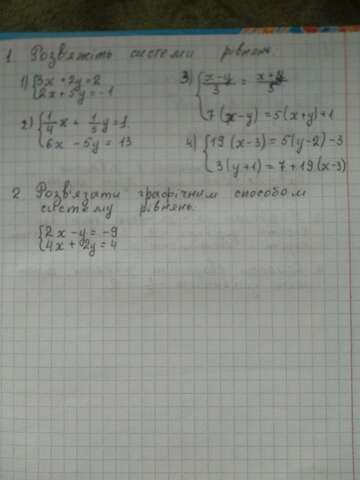 1. Розв'яжіть системи рівнянь
1) {3x + 2y = 2
2x + 5y = -1
2) {1/4 x + 1/5 y = 1
6x - 5y = 13
3) {x-y/3 = x+y/
7(x-y) = 5(x+y)+1
4) {19(x-3) = 5(y-2)-3
3(y+1) = 7+19(x-3)
2. Розв'язати графічним способом
систему рівнянь.
{2x - y = -9
4x + 2y = 4